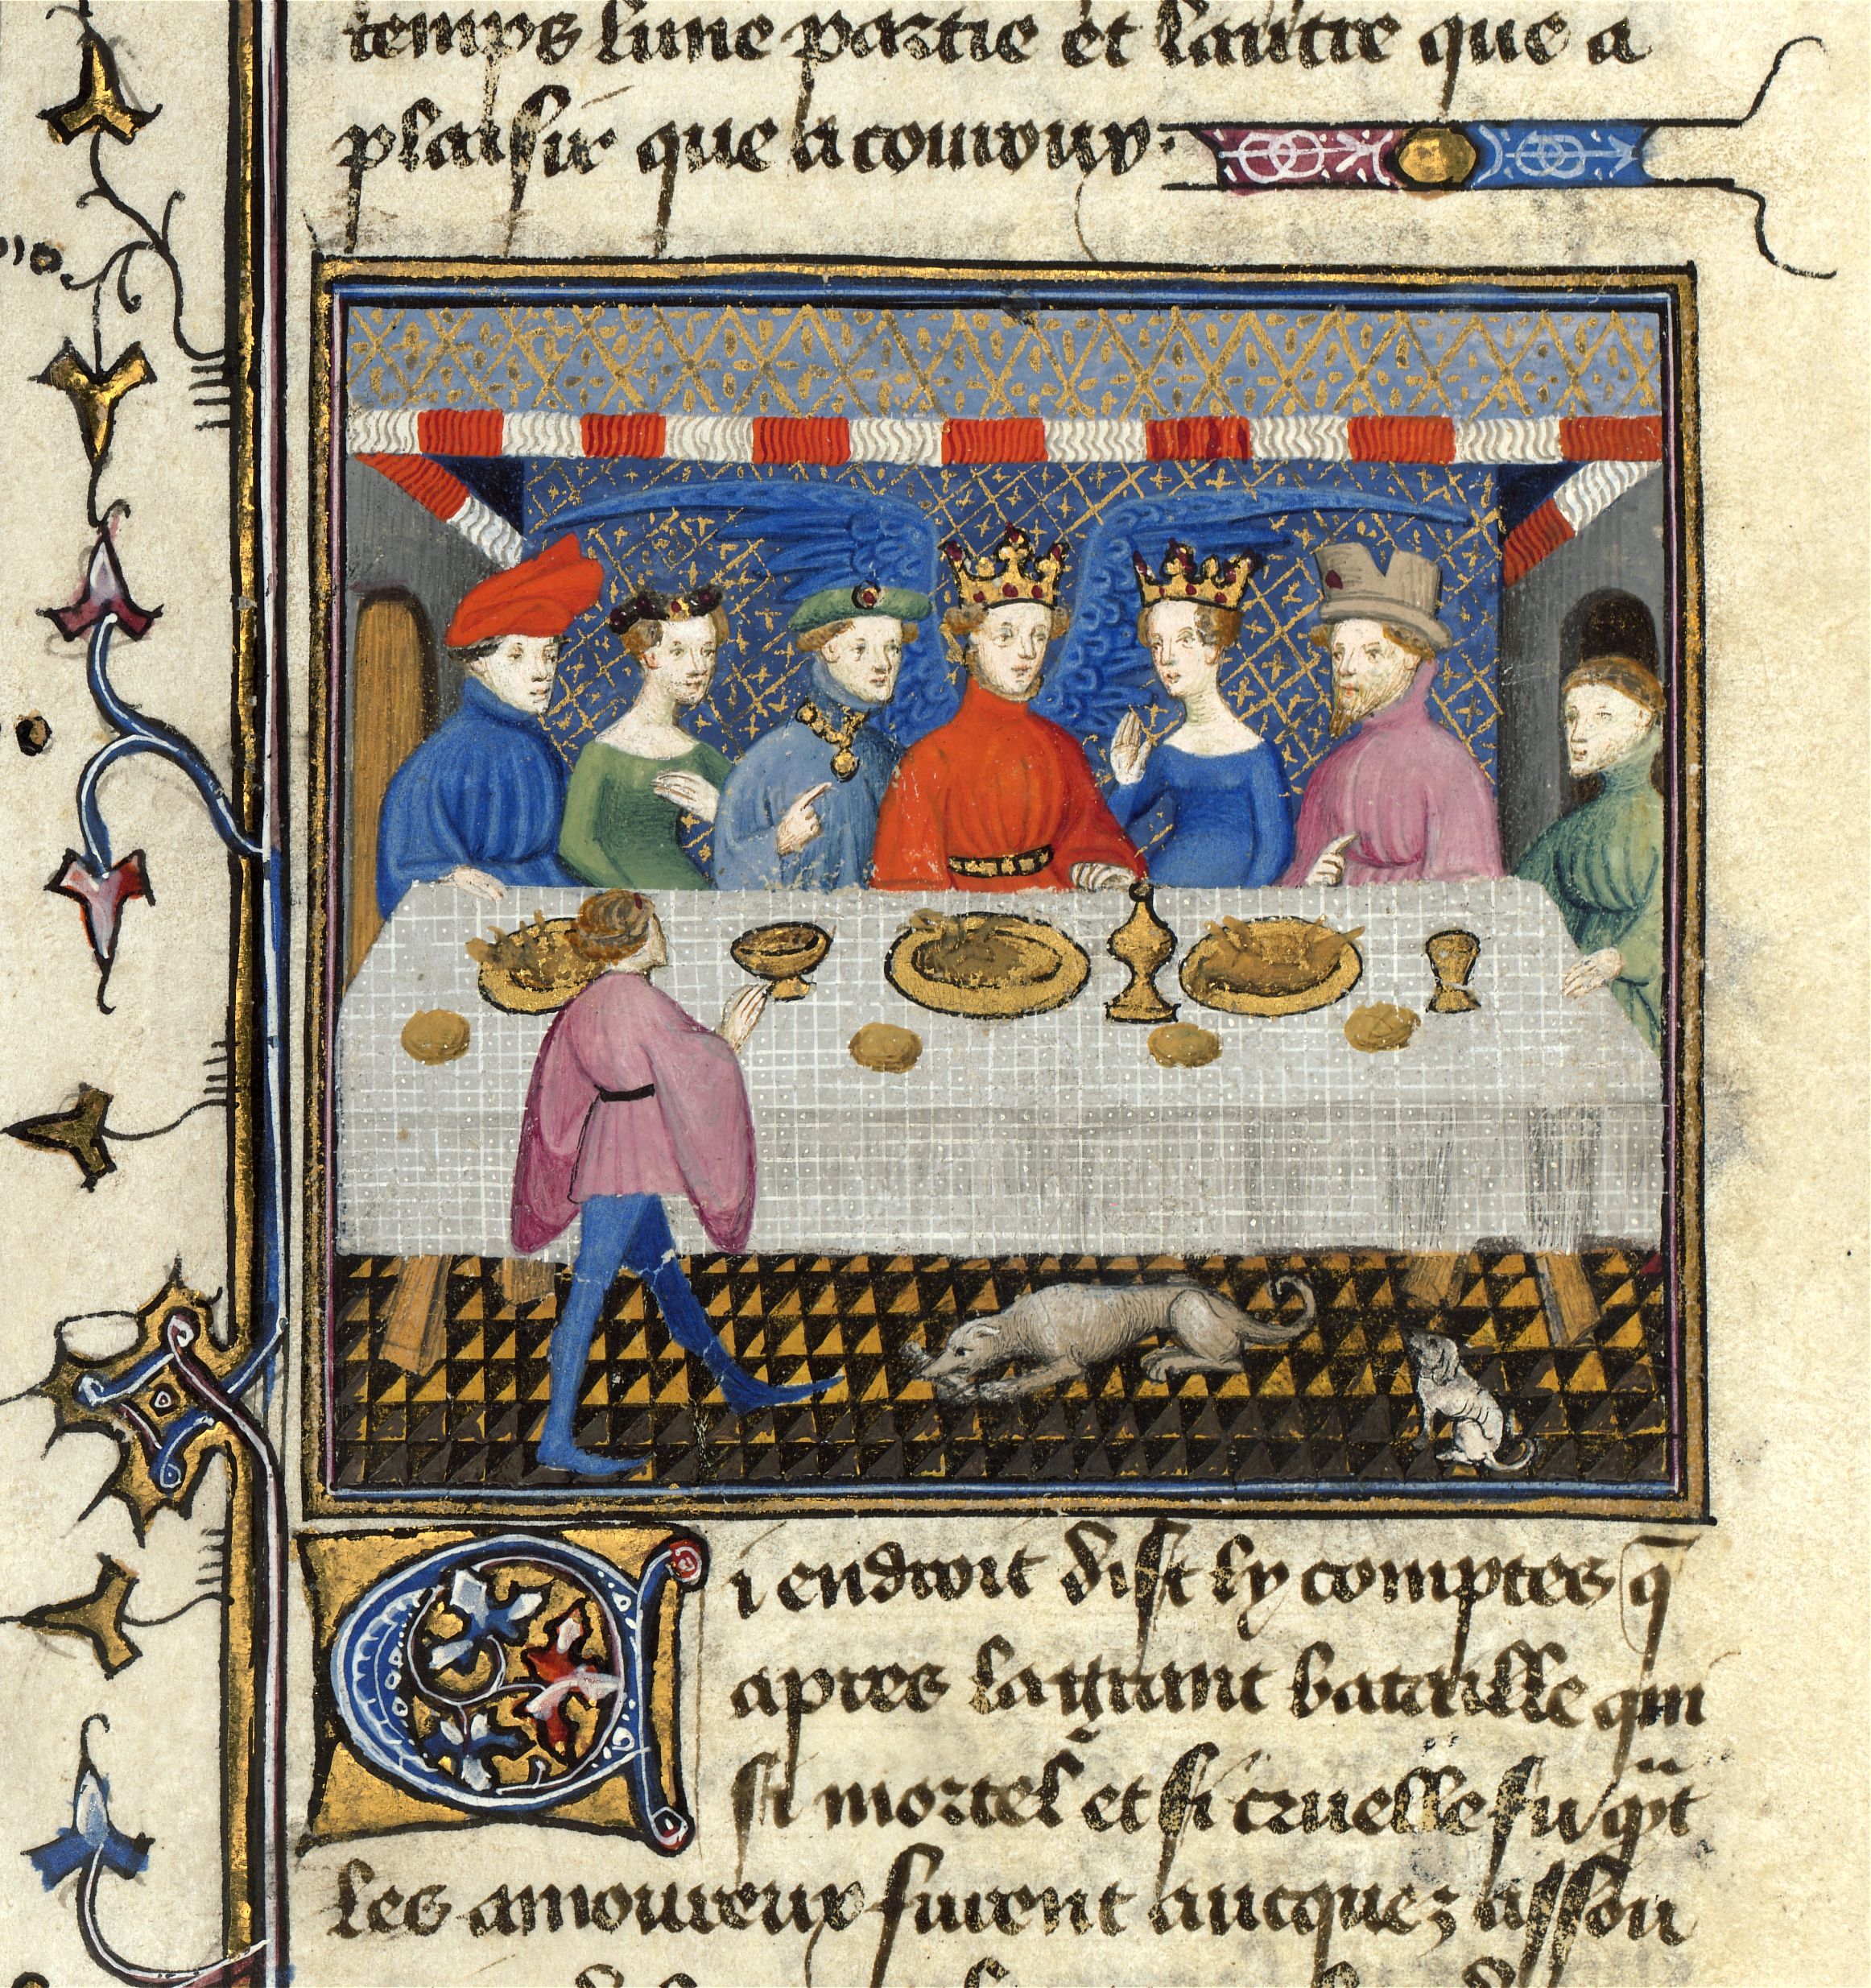 temps lune partie et lautre que a
plaisir que a courroux.
Ci endroit dist ly comptes q̄
apres la grant bataille qui
si mortel et si cruelle fu q̄nt
les amoureux furent aucques asson